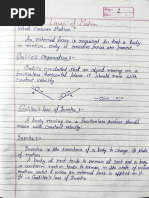 Page: 1
Date:
Laws of Motion
What Causes Motion?
An external force is required to keep a body
in motion, only if resistive forces are present.
Galileo's Observation :-
Galileo concluded that an object moving on a
frictionless horizontal plane it should move with
constant velocity.
Galileo's law of Inertia :-
A body moving on a frictionless surface should
move with constant velocity
Inertia :-
Inertia is the
of a body to change its state
of motion.
A body at rest tends to remain at rest and a body
in uniform motion tends to remain in motion with constant
velocity, in the absence of any external force, this
is Galileo's law of Inertia.